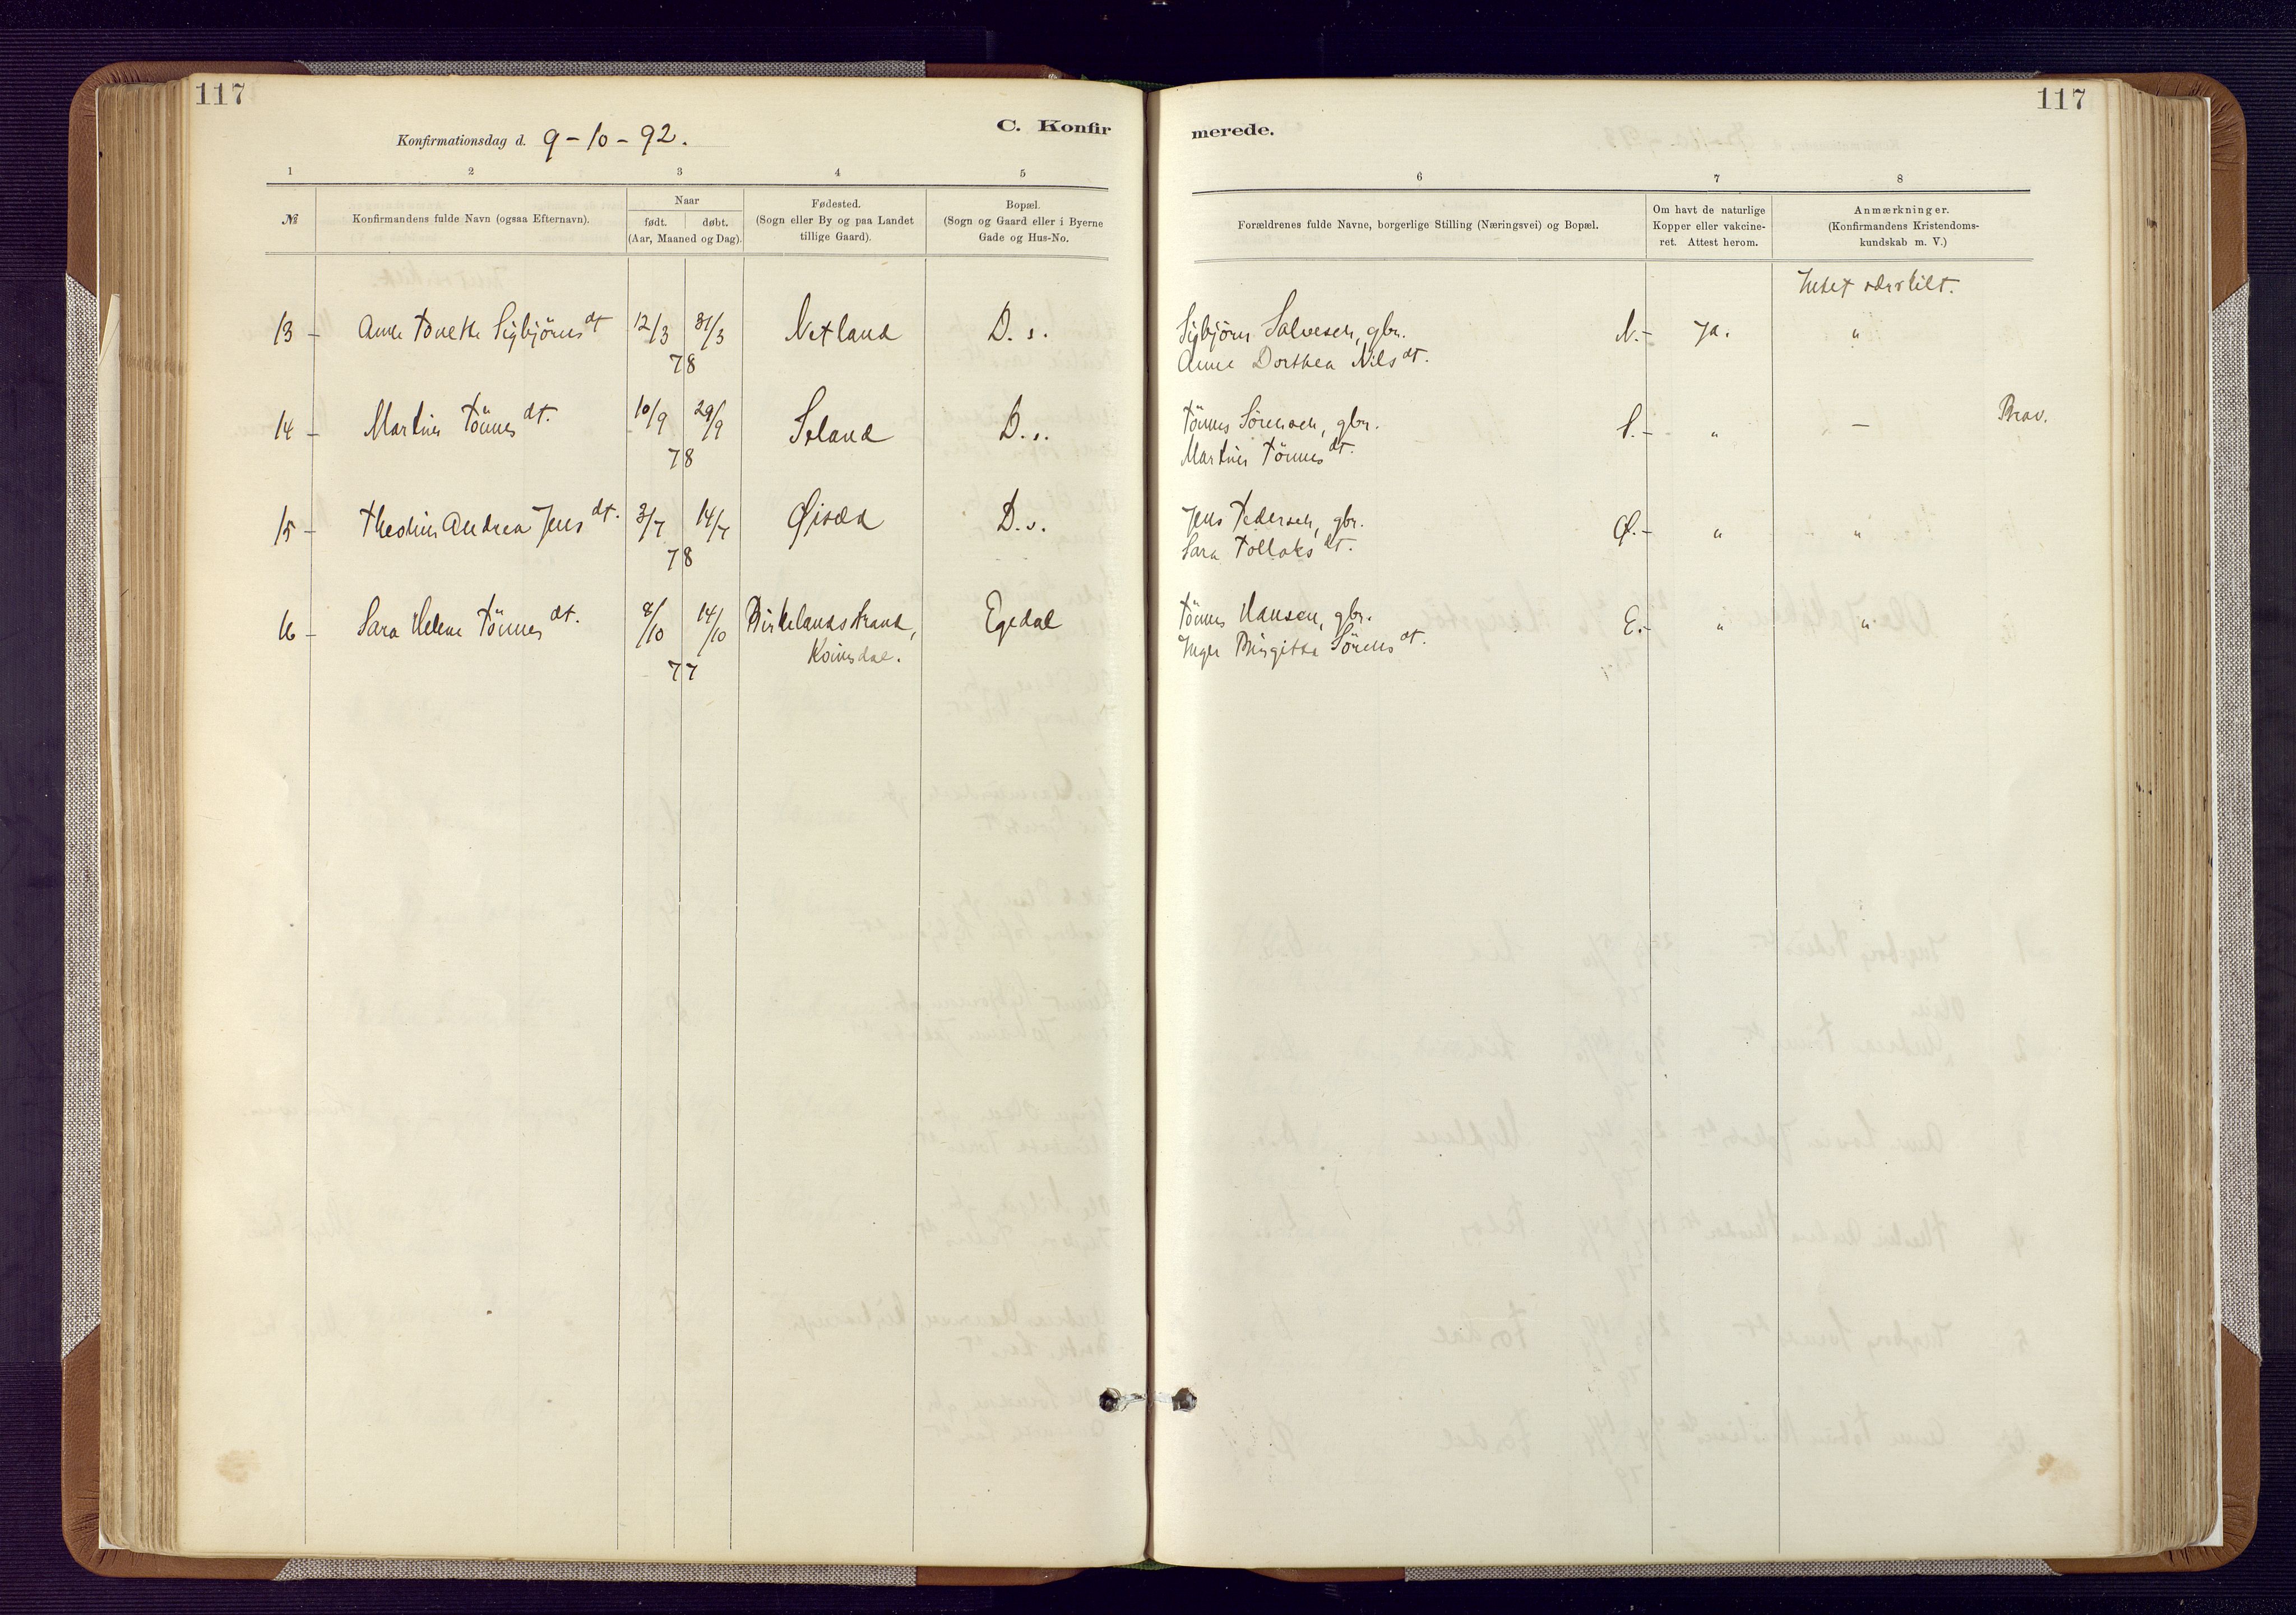 117
117
Konfirmationsdag d. 9-10-92.
C. Konfir
merede.
1 2 3 4 5
6 7 8
№
Konfirmandens fulde Navn (ogsaa Efternavn).
Naar
født. døbt.
(Aar, Maaned og Dag).
Fødested.
(Sogn eller By og paa Landet
tillige Gaard).
Bopæl.
(Sogn og Gaard eller i Byerne
Gade og Hus-No.
Forældrenes fulde Navne, borgerlige Stilling (Næringsvei) og Bopæl.
Om havt de naturlige
Kopper eller vakcine-
ret. Attest herom.
Anmærkninger.
(Konfirmandens Kristendoms-
kundskab m. V.)
Intet særskilt.
13 - Anne Tonette Sigbjörns dt 12/3 31/3 Netland D. s. Sigbjörn Salvesen, gbr. N.- Ja. "
78 Anne Dorthea Nils dt.
14 - Martine Tönnes dt. 10/9 29/9 Seland D. s. Tönnes Sörensen, gbr. S.- " - Brav.
78 Martine Tönnes dt.
15 - Theoline Andrea Jens dt. 3/7 14/7 Øisæd D. s. Jens Pedersen, gbr. Ø.- " "
78 Sara Tollaks dt.
16 - Sara Helene Tönnes dt. 8/10 14/10 Birkelandsstrand, Egedal Tönnes Hansen, gbr. E.- " "
77 Kvinesdal. Inger Birgitta Sörens dt.